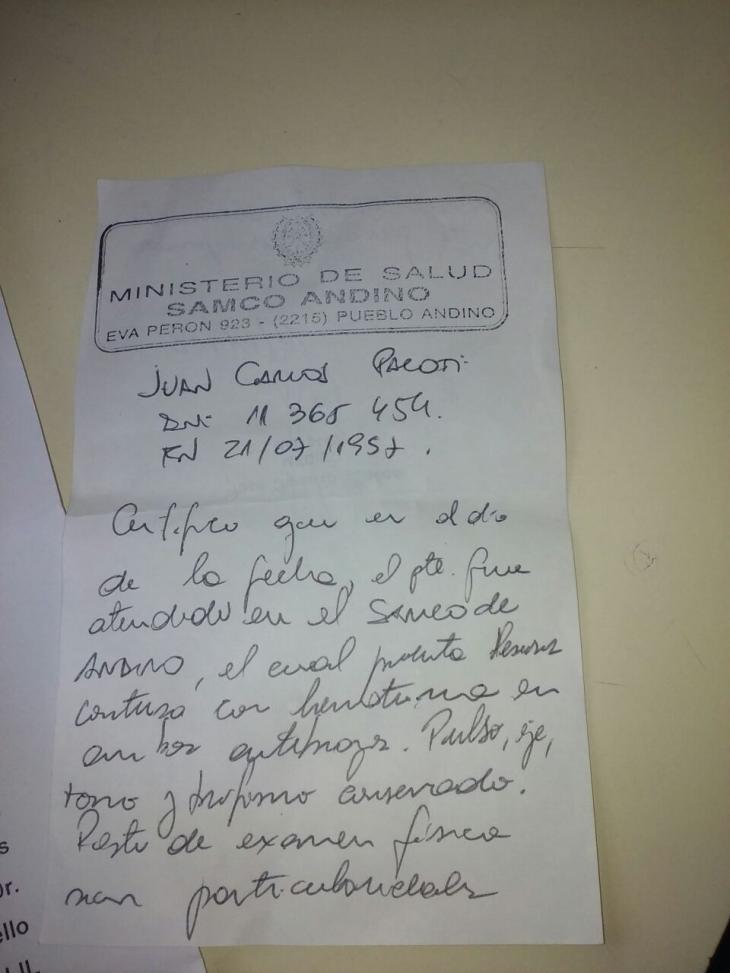 MINISTERIO DE SALUD
SAMCO ANDINO
EVA PERON 923 - (2215) PUEBLO ANDINO
JUAN CARLOS PACOTI
DNI 11 365 454.
FN 21/07/1957.
Certifico que en el día
de la fecha, el pte. fue
atendido en el SAMCO de
ANDINO, el cual presenta lesiones
contusa con hematoma en
ambos antebrazos. Pulso, eje,
tono y trofismo conservado.
Resto de examen físico
sin particularidades
s
or.
ello